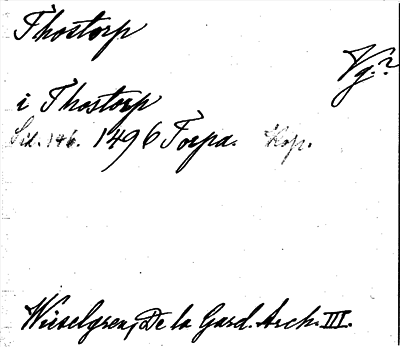 Thostorp
Vg.?
i Thostorp
Sid. 146. 1496 Torpa. Kop.
Wieselgren, De la Gard. Arch. III.